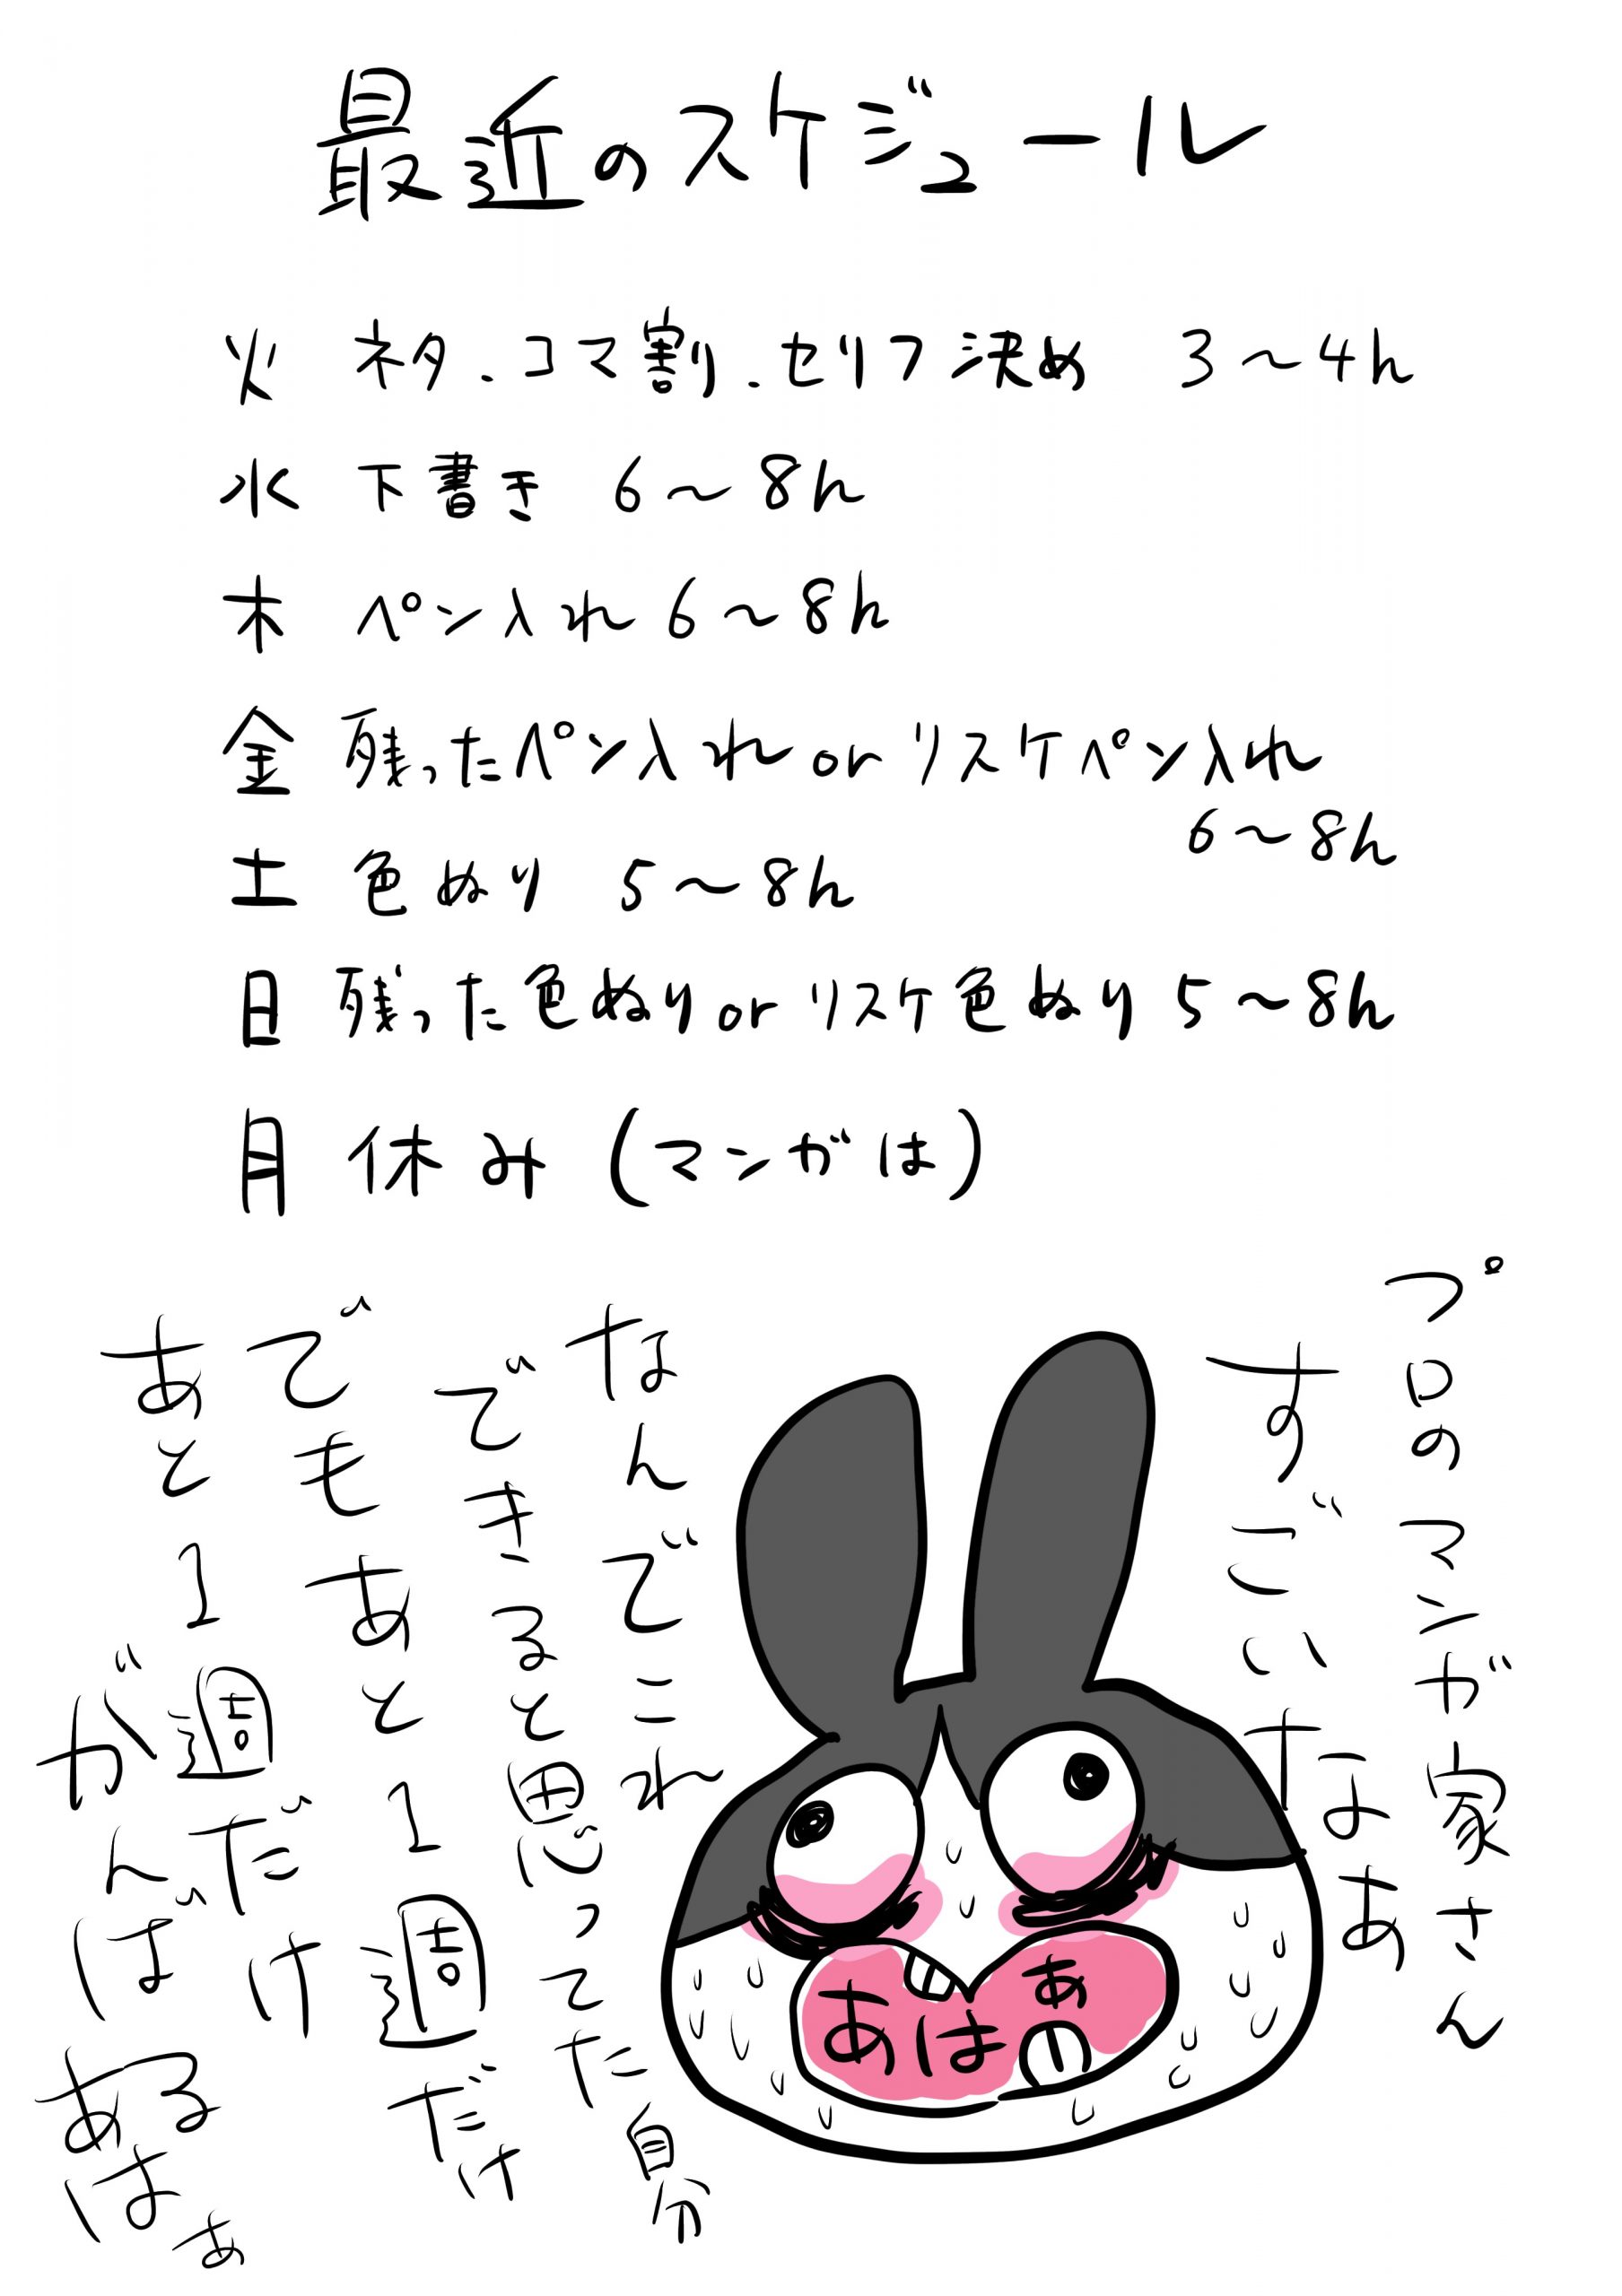 最近のスケジュール
火 ネタ.コマ割り.セリフ決め 3〜4h
水 下書き 6〜8h
木 ペン入れ 6〜8h
金 残ったペン入れ or リスケペン入れ
6〜8h
土 色ぬり 5〜8h
日 残った色ぬり or リスケ色ぬり 5〜8h
月 休み (マンガは)
プロのマンガ家さん
すごいなあ
なあ
あはぁ
なんでこれ
できると思ってた自分
でもあと1週だけ
あと1週だけ
がんばるあはぁ